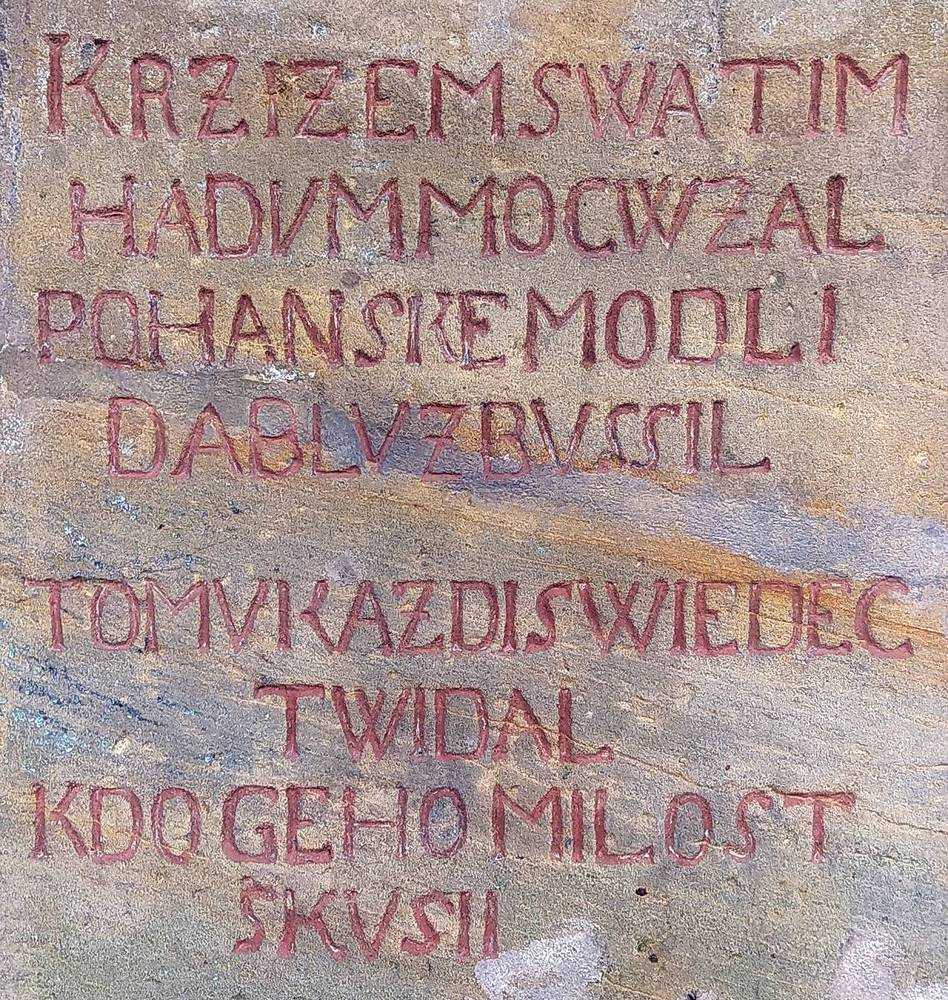 KRZIZEM SWATIM
HADVM MOC WZAL
POHANSKE MODLI
DABLV ZBVSSIL
TOMV KAZDI SWIEDEC
TWI DAL
KDO GEHO MILOST
SKVSII